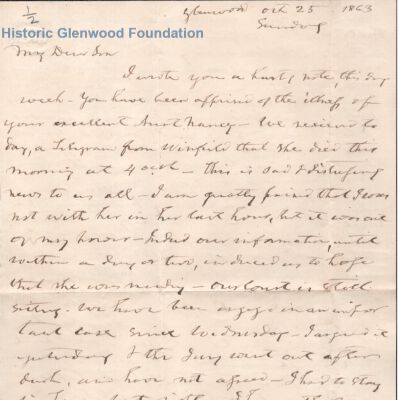 1/2
Historic Glenwood Foundation
Glenwood Oct 25 1863
Sunday
My Dear Son
I wrote you a hasty note, this day
week - You have been apprised of the illness of
your excellent Aunt Nancy - We received to
day, a telegram from Winfield that she died this
morning at 4 oclk - this is sad & distressing
news to us all - I am greatly pained that I was
not with her in her last hour, but it was out
of my power - Indeed our information, until
within a day or two, induced us to hope
that she was mending - our Court is still
sitting. We have been engaged in an impor
tant case since Wednesday - I argued it
yesterday & the Jury went out after
dark, and have not agreed - I had to stay
in